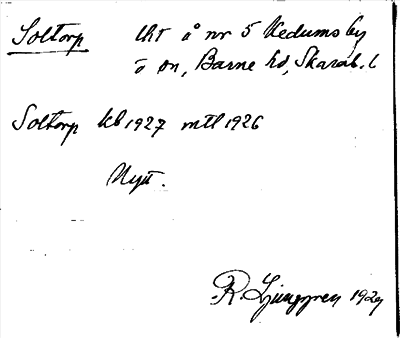 Soltorp lht å nr 5 Vedums by
i sn, Barne hd, Skarab. l
Soltorp kb 1927 mtl 1926
Nytt.
R. Ljunggren 1929